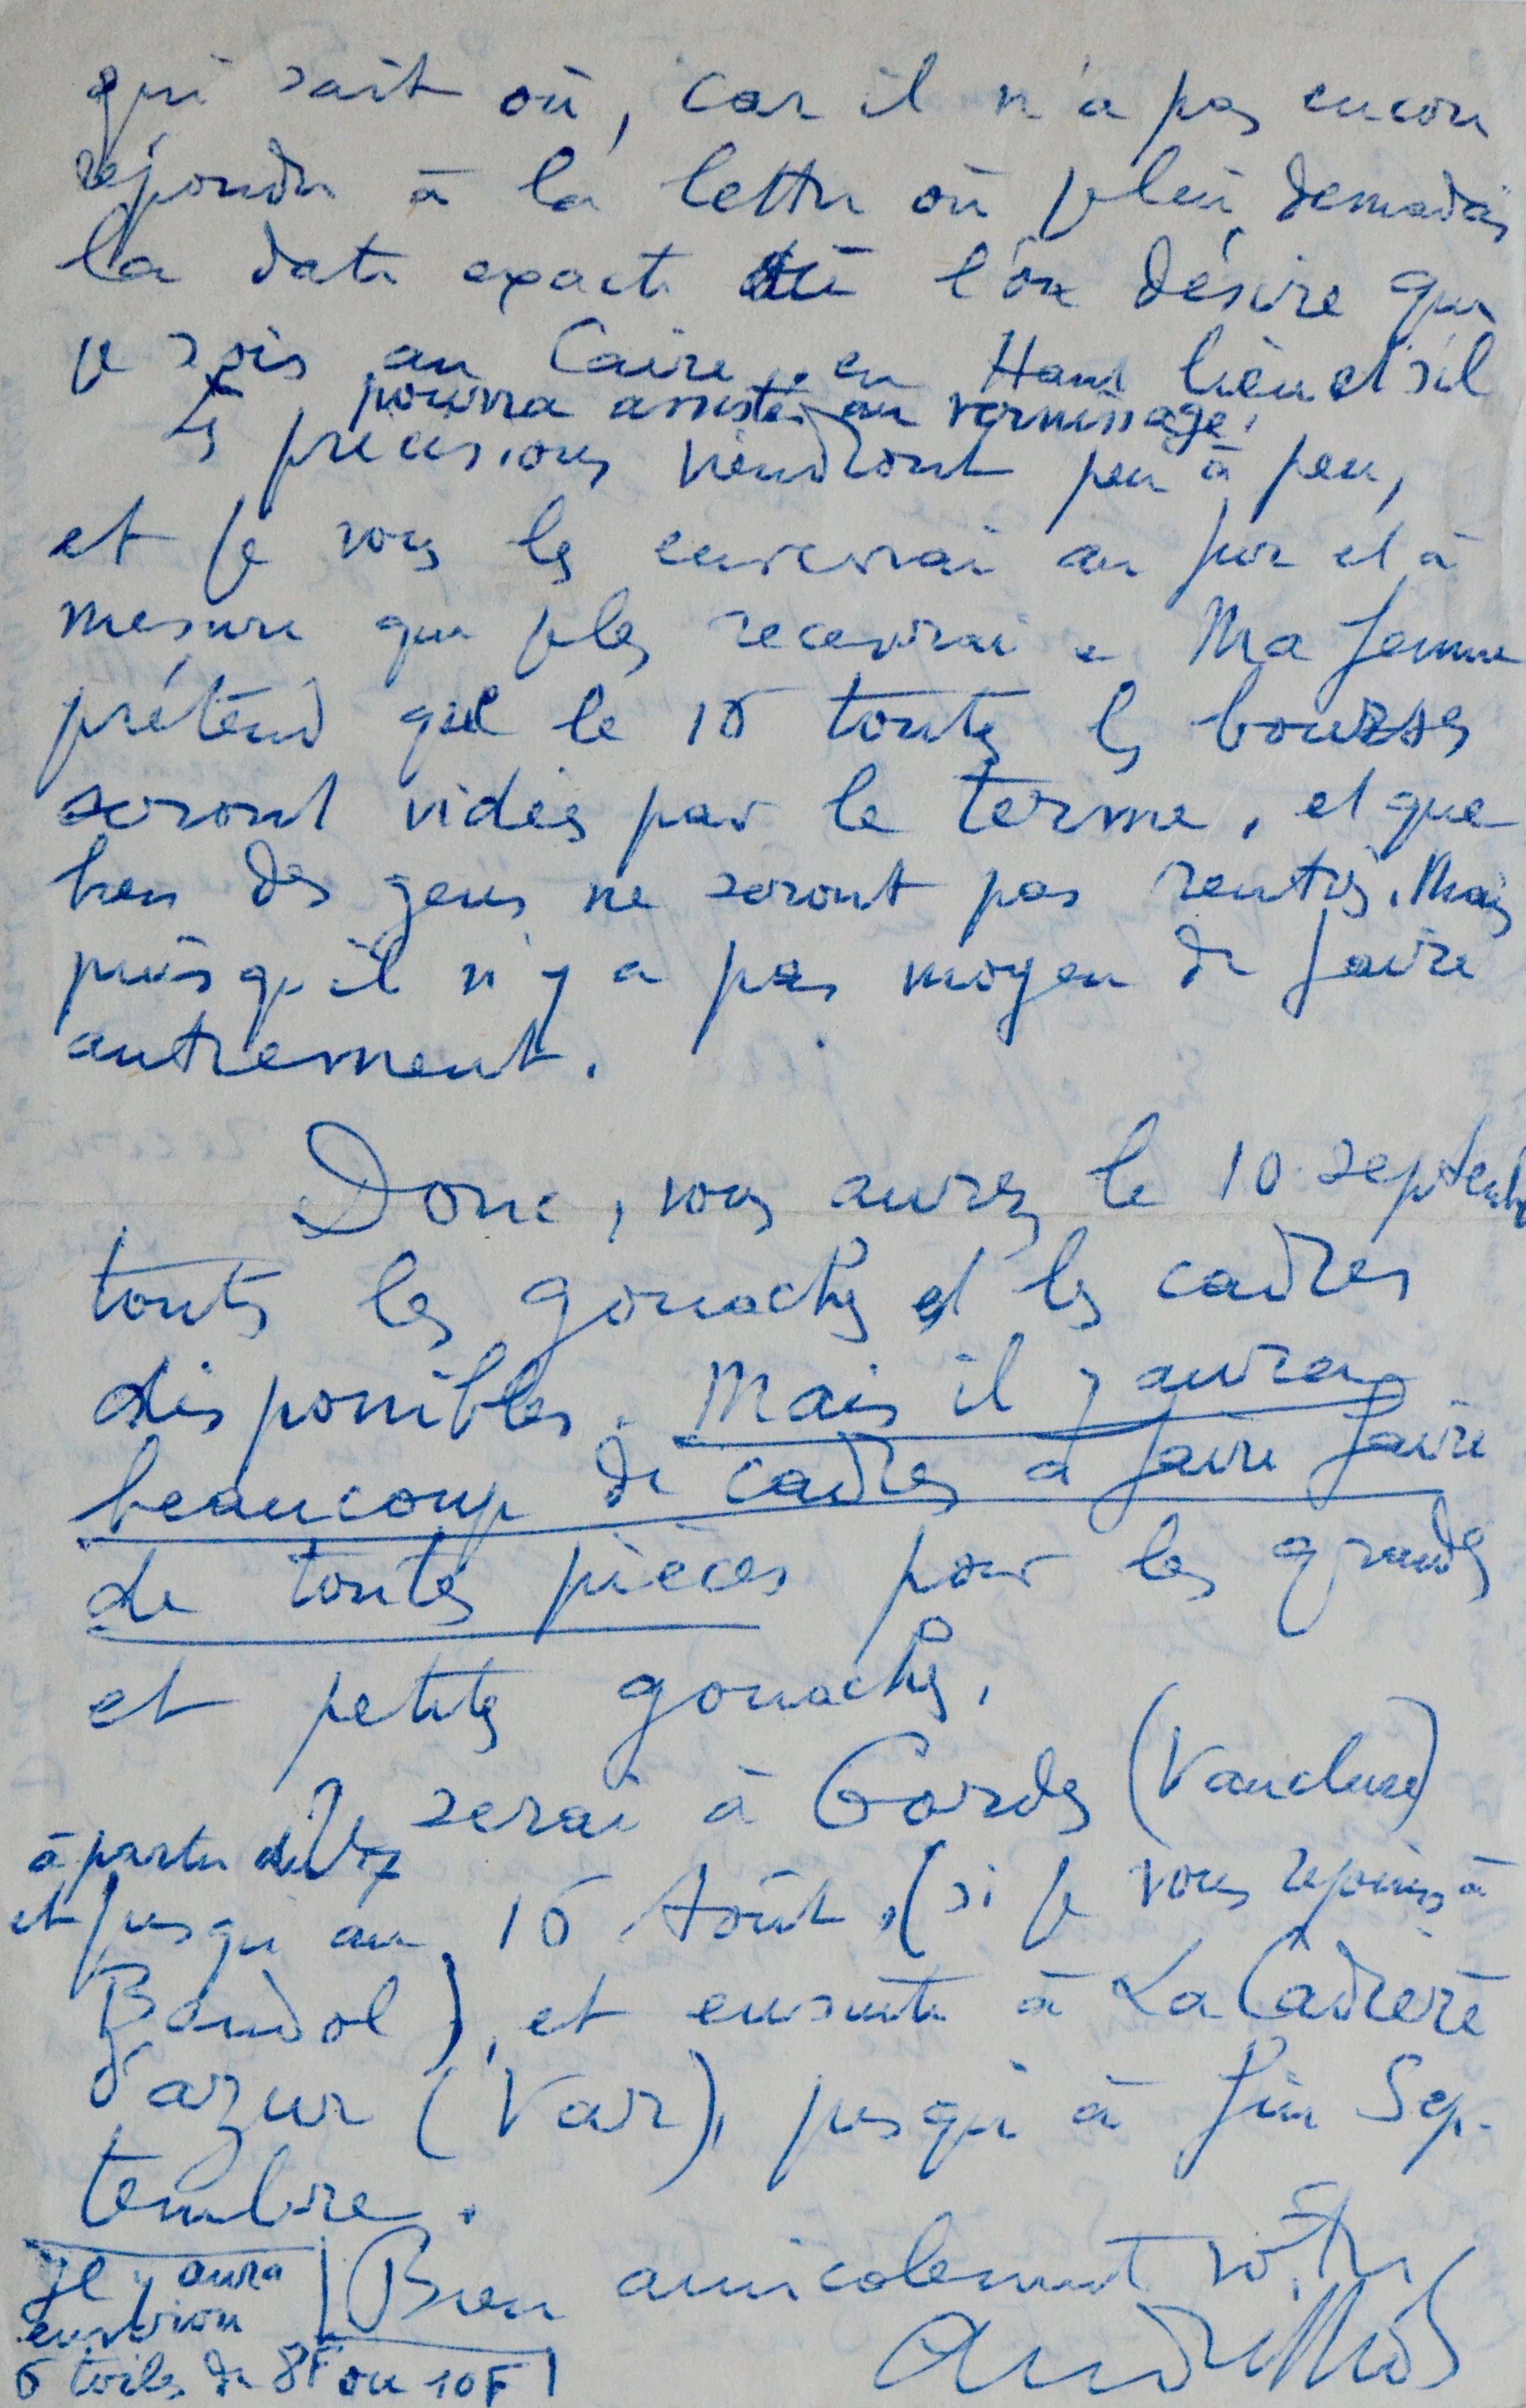 qui sait où, car il n'a pas encore
répondu à la lettre où je lui demandais
la date exacte où l'on désire que
je sois au Caire, en Haut lieu et s'il
pourra assister au vernissage.
Les précisions viendront peu à peu,
et je vous les enverrai au fur et à
mesure que je les recevrai. Ma femme
prétend que le 15 toutes les bourses
seront vidées par le terme, et que
bien des gens ne seront pas rentrés. Mais
puisqu'il n'y a pas moyen de faire
autrement.
Donc, vous aurez le 10 septembre
toutes les gouaches et les cadres
disponibles. Mais il y aura
beaucoup de cadres à faire faire
de toutes pièces pour les grandes
et petites gouaches.
Je serai à Gordes (Vaucluse)
à partir du
et jusqu'au 15 Août, (si je vous rejoins à
Bandol), et ensuite à La Cadière
d'azur (Var), jusqu'à fin Sep-
tembre.
Bien amicalement vôtre
André Lhote
Il y aura
environ
6 toiles de 8F ou 10F